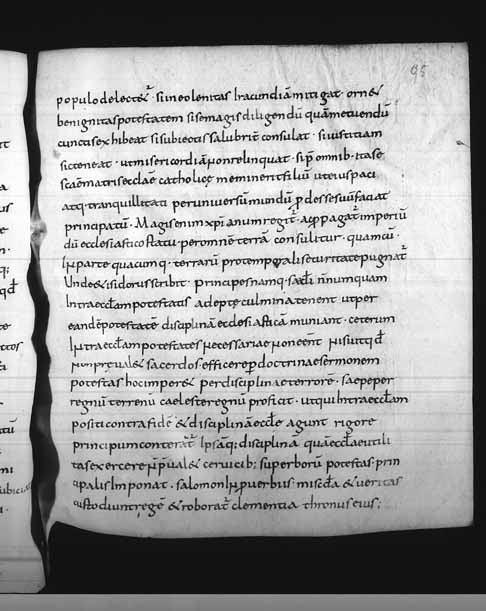 95
populo delectet᷑ · si in eo lenitas Iracundiā mitigat · ornet
benignitas potestatem si se magis diligendū quā metuendū
cunctis exhibeat si subiectis salubrit̄ consulat · si iustitiam
sic teneat · ut misericordiā non relinquat · sup̄ omnib· ita se
scāe matris ecclae catholicę meminerit filiū ut eius paci
atq· tranquillitati per uniuersū mundū p̄desse suū faciat
principatū · Magis enim xp̄ianum regit᷑ · ac p̄pagat᷑ imperiū
dū ecclesiastico statui · per omnē terrā consulitur · quam cū ·
In parte quacumq· terrarū pro temporali securitate pugnat᷑
Unde & isidorus scribit · principes namq· saecl̄i nonnumquam
Intra eccl̄am potestatis adeptę culmina tenent ut per
eandē potestatē disciplinā ecclesiasticā muniant · ceterum
Intra eccl̄am potestates necessariae non eent̄ nisi ut qd̄
non p̄ualet sacerdos efficere per doctrinae sermonem
potestas hoc imperet per disciplinae terrorē · saepe per
regnū terrenū caeleste regnū proficit · ut qui Intra eccl̄am
positi contra fidē & disciplinā eccl̄e agunt rigore
principum conterant᷑ Ipsāq; disciplinā quā eccl̄ae utili
tas exercere n̄ p̄ualet ceruicib; superborū potestas prin
cipalis Imponat · salomon In puerbiis miscd̄a & ueritas
custodiunt regē & roborat᷑ clementia thronus eius ;